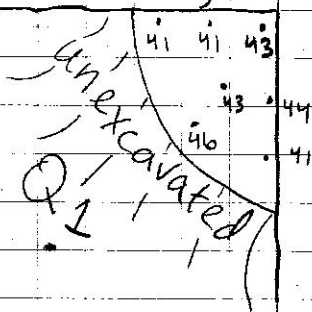 41 41 43
43 44
46 41
unexcavated
Q1